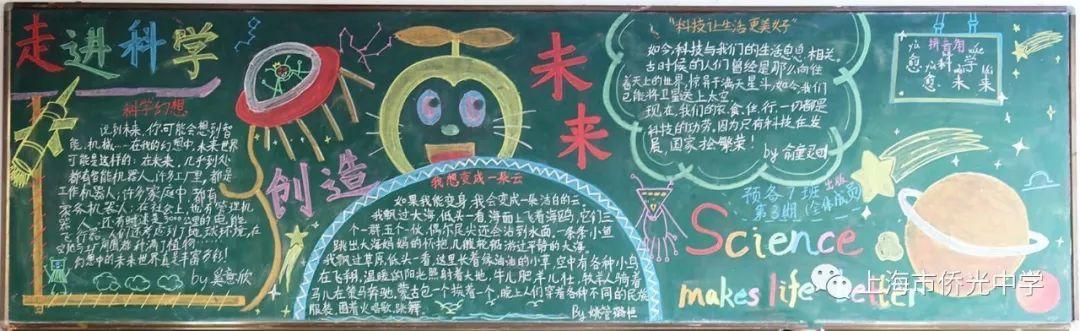 走进科学
创造
未来
科学幻想
说到未来,你可能会想到智
能、机械……在我的幻想中,未来世界
可能是这样的:在未来,几乎到处
都有智能机器人,许多工厂里,都是
工作机器人,许多家庭中,都有
家务机器人,在社会上,也有管理机
器人。还有时速是3000公里的电能
飞行器,人们还考虑到了地球环境,在
空地与工厂周围都种满了植物……
幻想中的未来世界真是丰富多彩!
by 奚意欣
我想变成一朵云
如果我能变身,我会变成一朵洁白的云。
我飘过大海,低头一看,海面上飞着海鸥,它们三
个一群,五个一伙,偶尔尾尖还会沾到水面,一条条小鱼
跳出大海妈妈的怀抱,几艘轮船游过平静的大海。
我飘过草原,低头一看,这里长着绿油油的小草,空中有各种小鸟
在飞翔,温暖的阳光照射着大地,牛儿肥,羊儿壮,牧羊人骑着
马儿在策马奔驰,蒙古包一个挨着一个,晚上人们穿着各种不同的民族
服装,围着火唱歌、跳舞。
By 姚管
“科技让生活更美好”
如今,科技与我们的生活息息相关。
古时候的人们曾经是那么向往
着天上的世界,惊异于满天星斗,如今,我们
已能将卫星送上太空。
现在,我们的衣、食、住、行一切都是
科技的功劳,因为只有科技在发
展,国家才会繁荣!
by 俞
拼音角
yù kē xué
愈 科 学
yù wèi lái
愈 未 来
预备7班 出版
第3期 (全体版面)
Science
makes life better
上海市侨光中学